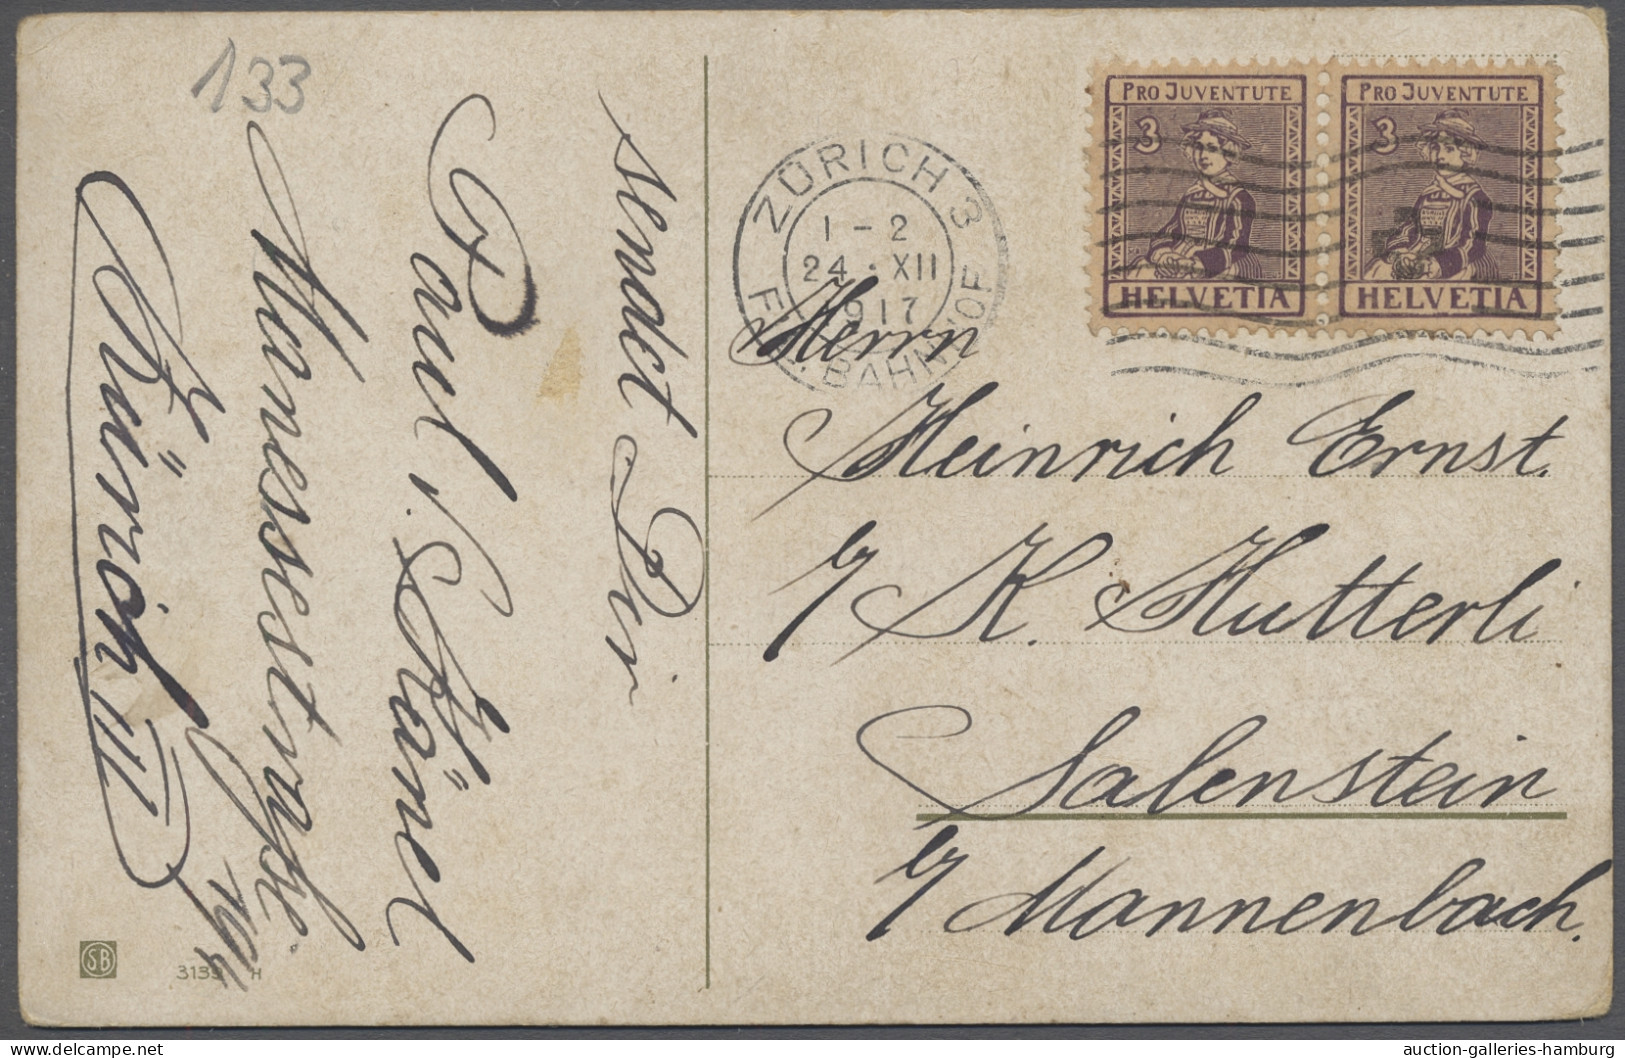 133
sendet Dir
Paul
Zürich III
PRO JUVENTUTE
3
HELVETIA
PRO JUVENTUTE
3
HELVETIA
ZÜRICH 3
1 - 2
24. XII
1917
BAHNHOF
Herrn
Heinrich Ernst.
K. Hutterli
Salenstein
Mannenbach.
SB
auction-galleries-hamburg